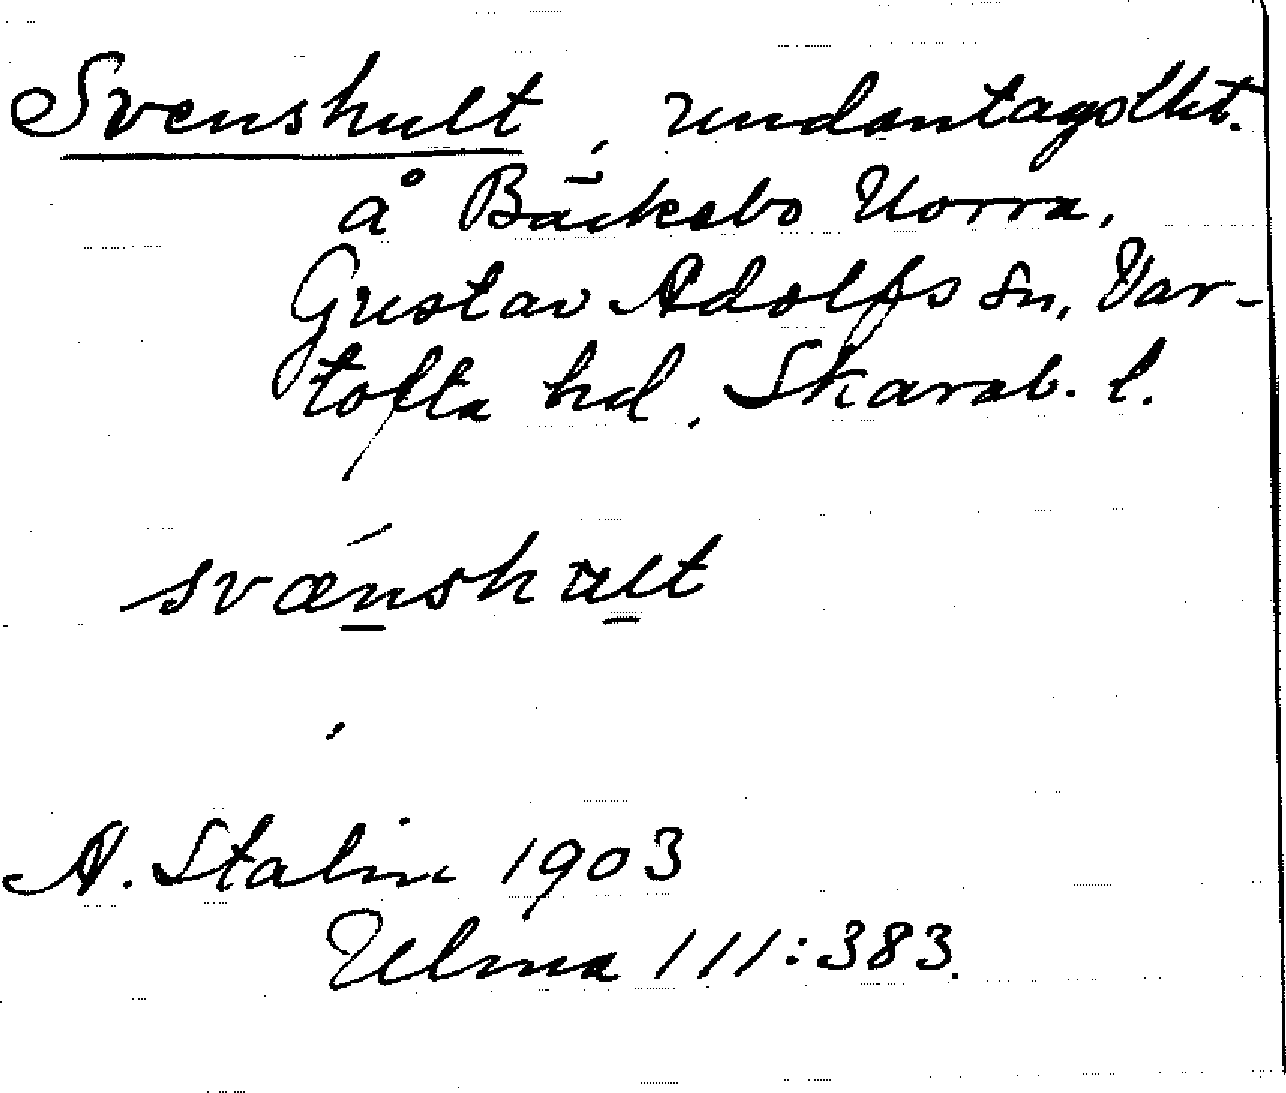 Svenshult, undantagslht.
å Bäckabo Norra,
Gustav Adolfs sn, Var-
tofta hd, Skarab. l.
svænshult
A. Stalin 1903
Ulma 111:383.